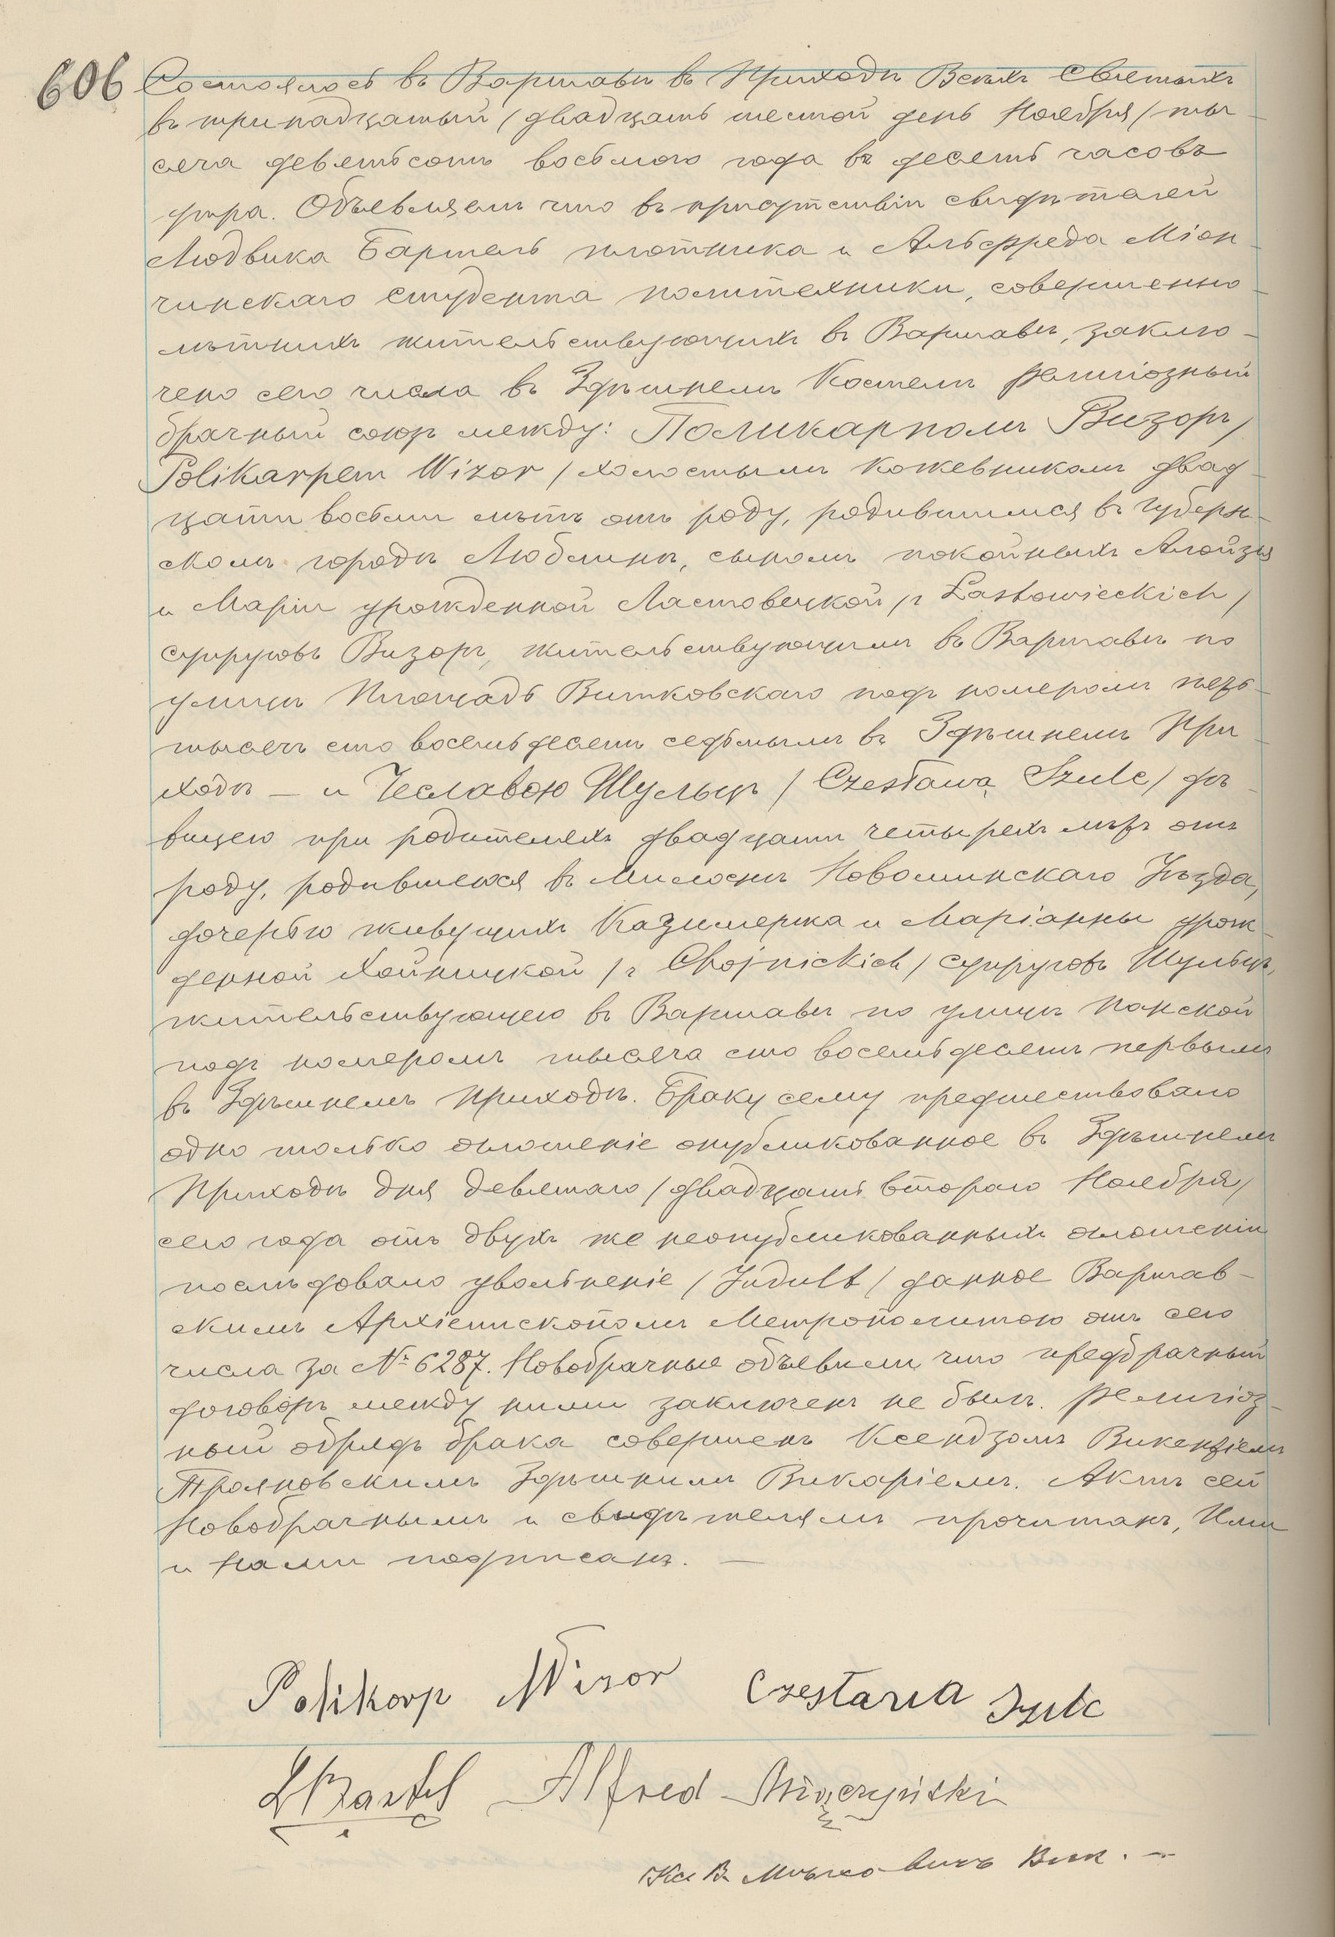 606 Состоялось въ Варшавѣ въ Приходѣ Всѣхъ Святыхъ
въ тринадцатый / двадцать шестой день Ноября / ты-
сяча девятьсотъ восьмого года въ десять часовъ
утра. Объявляемъ что въ присутствіи свидѣтелей
Людвика Бартель плотника и Альфреда Міон-
чинскаго студента политехники, совершенно-
лѣтнихъ жительствующихъ въ Варшавѣ, заклю-
чено сего числа въ Здѣшнемъ Костелѣ религіозный
брачный союзъ между: Поликарпомъ Визоръ /
Polikarpem Wizor / холостымъ кожевникомъ двад-
цати восьми лѣтъ отъ роду, родившимся въ Губерн-
скомъ городѣ Люблинѣ, сыномъ покойныхъ Алойзія
и Маріи урожденной Ластовецкой / z Lastowieckich /
супруговъ Визоръ, жительствующимъ въ Варшавѣ по
улицѣ Площадь Витковскаго подъ номеромъ пять
тысячъ сто восемьдесятъ седьмымъ въ Здѣшнемъ При-
ходѣ — и Чеславою Шульцъ / Czesławą Szulc / дѣ-
вицею при родителяхъ двадцати четырехъ лѣтъ отъ
роду, родившеюся въ Милоснѣ Новоминскаго Уѣзда,
дочерью живущихъ Казимержа и Маріанны урож-
денной Хойницкой / z Chojnickich / супруговъ Шульцъ,
жительствующею въ Варшавѣ по улицѣ Панской
подъ номеромъ тысяча сто восемьдесятъ первымъ
въ Здѣшнемъ Приходѣ. Браку сему предшествовало
одно только оглашеніе опубликованное въ Здѣшнемъ
Приходѣ дня девятаго / двадцать втораго Ноября /
сего года отъ двухъ же неопубликованныхъ оглашеній
послѣдовало увольненіе / Indult / данное Варшав-
скимъ Архіепископомъ Метрополитою отъ сего
числа за № 6287. Новобрачные объявили что предбрачный
договоръ между ними заключенъ не былъ. Религіоз-
ный обрядъ брака совершенъ Ксендзомъ Викентіемъ
Трояновскимъ Здѣшнимъ Викаріемъ. Актъ сей
Новобрачнымъ и свидѣтелямъ прочитанъ, Ими
и Нами подписанъ. —
Polikarp Wizor Czesława Szulc
L Bartel Alfred Miączyński
Кс. В. Вик. —